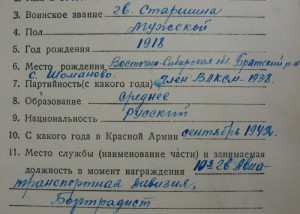 3. Воинское звание гв. Старшина
4. Пол Мужской
5. Год рождения 1918
6. Место рождения Восточно-Сибирская обл. Братский р-н
с. Шаманово.
7. Партийность (с какого года) Член ВЛКСМ 1938.
8. Образование среднее
9. Национальность русский
10. С какого года в Красной Армии сентября 1942г.
11. Место службы (наименование части) и занимаемая
должность в момент награждения 10я гв Авиа-
транспортная дивизия,
Бортрадист